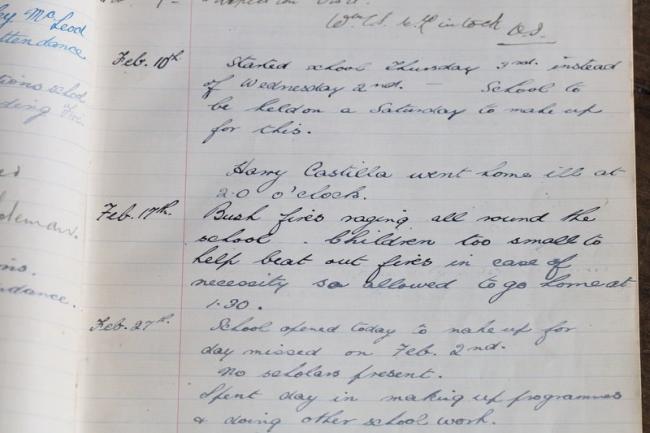 Mc Leod
ttendance
Feb. 10th
Started school Thursday 3rd. instead
of Wednesday 2nd. — School to
be held on a Saturday to make up
for this.
Harry Castilla went home ill at
2.0 o'clock.
Feb. 17th. Bush fires raging all round the
school. Children too small to
help beat out fires in case of
necessity so allowed to go home at
1.30.
Feb. 27th. School opened today to make up for
day missed on Feb. 2nd.
No scholars present.
Spent day in making up programmes
& doing other school work.
dance.